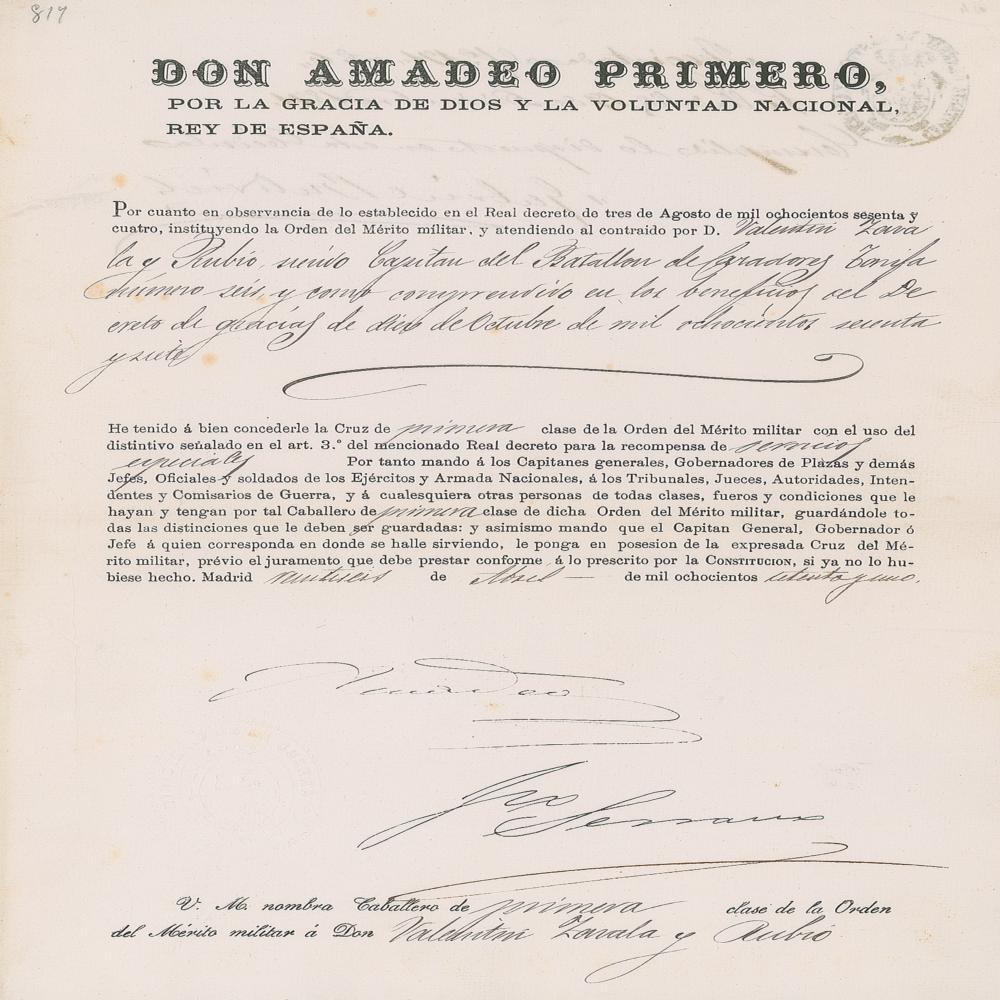 817
DON AMADEO PRIMERO,
POR LA GRACIA DE DIOS Y LA VOLUNTAD NACIONAL,
REY DE ESPAÑA.
Por cuanto en observancia de lo establecido en el Real decreto de tres de Agosto de mil ochocientos sesenta y
cuatro, instituyendo la Orden del Mérito militar, y atendiendo al contraido por D. Valentin Zava
la y Rubio, siendo Capitan del Batallon de Cazadores Tarifa
número seis y como comprendido en los beneficios del De
creto de gracias de diez de Octubre de mil ochocientos sesenta
y siete
He tenido á bien concederle la Cruz de primera clase de la Orden del Mérito militar con el uso del
distintivo señalado en el art. 3.º del mencionado Real decreto para la recompensa de servicios
especiales Por tanto mando á los Capitanes generales, Gobernadores de Plazas y demás
Jefes, Oficiales y soldados de los Ejércitos y Armada Nacionales, á los Tribunales, Jueces, Autoridades, Inten-
dentes y Comisarios de Guerra, y á cualesquiera otras personas de todas clases, fueros y condiciones que le
hayan y tengan por tal Caballero de primera clase de dicha Orden del Mérito militar, guardándole to-
das las distinciones que le deben ser guardadas: y asimismo mando que el Capitan General, Gobernador ó
Jefe á quien corresponda en donde se halle sirviendo, le ponga en posesion de la expresada Cruz del Mé-
rito militar, prévio el juramento que debe prestar conforme á lo prescrito por la CONSTITUCION, si ya no lo hu-
biese hecho. Madrid veintiseis de Abril — de mil ochocientos setenta y uno.
Amadeo
Fco Serrano
V. M. nombra Caballero de primera clase de la Orden
del Mérito militar á Don Valentin Zavala y Rubio